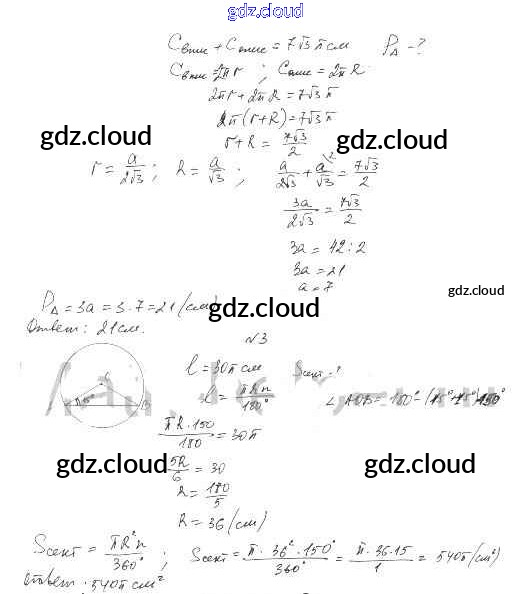 gdz.cloud
Cвпис + Cопис = 7√3 π см P△ - ?
Cвпис = 2πr ; Cопис = 2πR
2πr + 2πR = 7√3 π
2π(r+R) = 7√3 π
r+R = 7√3/2
gdz.cloud gdz.cloud
r = a/2√3 ; R = a/√3 ; a/2√3 + a/√3 = 7√3/2
3a/2√3 = 7√3/2
3a = 42:2
3a = 21
a = 7
gdz.cloud
P△ = 3a = 3·7 = 21 (см)
gdz.cloud
Ответ: 21 см.
N3
l = 30π см Sсект - ?
l = πRn/180° ∠AOB = 180° - (15°+15°) 150°
gdz.cloud
πR·150/180 = 30π
5R/6 = 30
gdz.cloud gdz.cloud
R = 180/5
R = 36 (см)
Sсект = πR²n/360° ; Sсект = π·36²·150°/360° = π·36·15/1 = 540π (см²)
Ответ. 540π см²
gdz.cloud